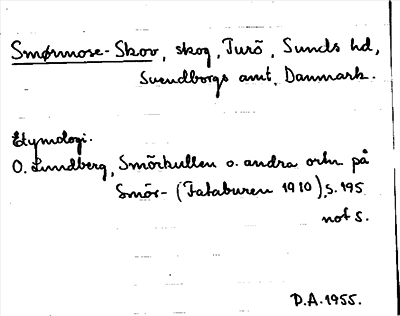 Smørmose-Skov, skog, Turö, Sunds hd,
Svendborgs amt, Danmark.
Etymologi.
O. Lundberg, Smörkullen o. andra ortn. på
Smör- (Fataburen 1910), s. 195
not 5.
D.A. 1955.